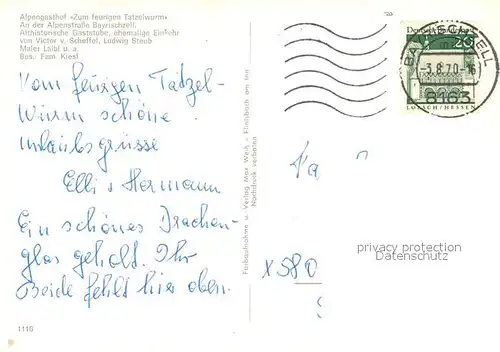 Alpengasthof «Zum feurigen Tatzelwurm»
An der Alpenstraße Bayrischzell.
Althistorische Gaststube, ehemalige Einkehr
von Victor v. Scheffel, Ludwig Steub
Maler Leibl u. a.
Bes. Fam Kiesl
Vom feurigen Tatzel-
Wurm schöne
Urlaubsgrüsse
Elli u Hermann
Ein schönes Drachen-
glas geholt. Ihr
Beide fehlt hier oben.
1116
Farbaufnahme u. Verlag Max Weiß - Flintsbach am Inn
Nachdruck verboten
BAYRISCHZELL
-3.8.70-16
8163
20
LORSCH/HESSEN
x 580
privacy protection
Datenschutz